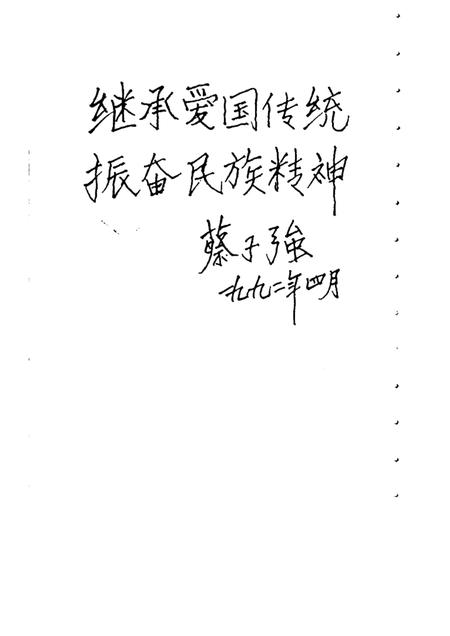 继承爱国传统
振奋民族精神
蔡子強
一九九二年四月